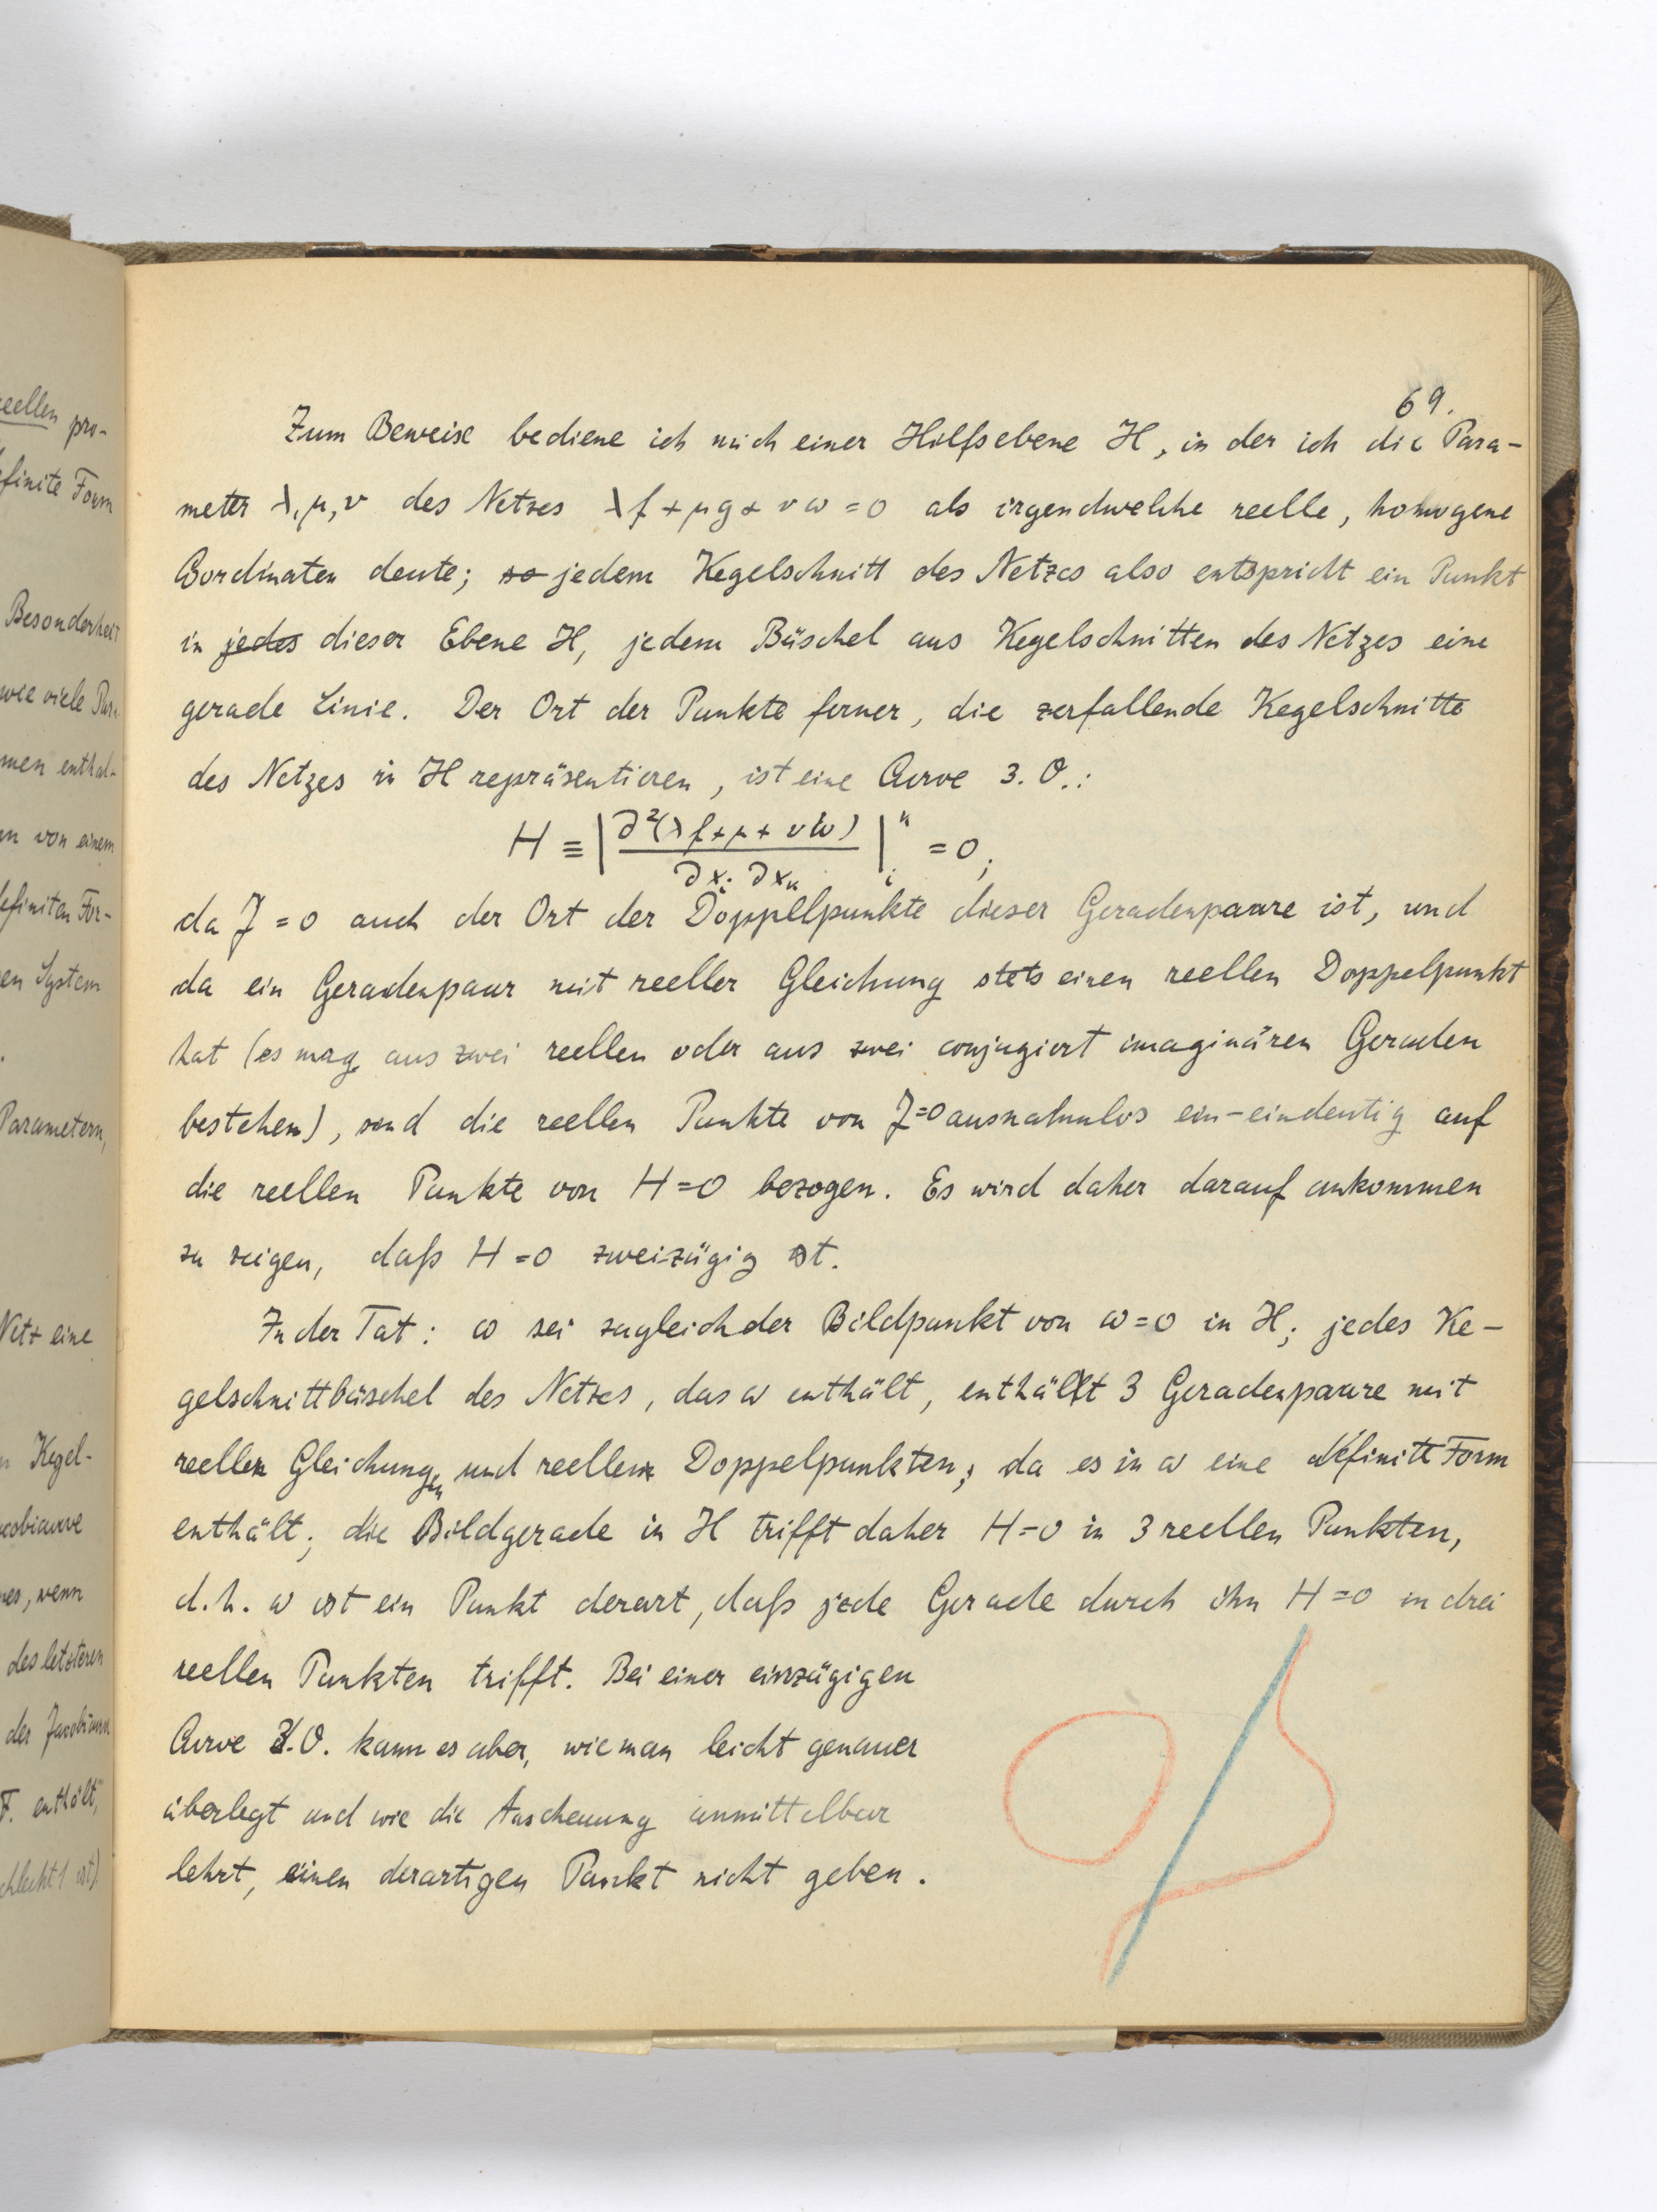 69.
Zum Beweise bediene ich mich einer Hilfsebene H, in der ich die Para-
meter λ, μ, ν des Netzes λf + μg + νω = 0 als irgendwelche reelle, homogene
Coordinaten deute; so jedem Kegelschnitt des Netzes also entspricht ein Punkt
in jedes dieser Ebene H, jedem Büschel aus Kegelschnitten des Netzes eine
gerade Linie. Der Ort der Punkte ferner, die zerfallende Kegelschnitte
des Netzes in H repräsentieren, ist eine Curve 3. O.:
H ≡ | ∂²(λf + μ + νω) / ∂xᵢ ∂xₖ |ᵢᵏ = 0;
da J = 0 auch der Ort der Doppelpunkte dieser Geradenpaare ist, und
da ein Geradenpaar mit reeller Gleichung stets einen reellen Doppelpunkt
hat (es mag aus zwei reellen oder aus zwei conjugiert imaginären Geraden
bestehen), sind die reellen Punkte von J=0 ausnahmlos ein-eindeutig auf
die reellen Punkte von H=0 bezogen. Es wird daher darauf ankommen
zu zeigen, daß H=0 zweizügig ist.
In der Tat: ω sei zugleich der Bildpunkt von ω=0 in H; jedes Ke-
gelschnittbüschel des Netzes, das ω enthält, enthält 3 Geradenpaare mit
reellen Gleichungen und reellen Doppelpunkten, da es in ω eine definite Form
enthält; die Bildgerade in H trifft daher H=0 in 3 reellen Punkten,
d.h. ω ist ein Punkt derart, daß jede Gerade durch ihn H=0 in drei
reellen Punkten trifft. Bei einer einzügigen
Curve 3.O. kann es aber, wie man leicht genauer
überlegt und wie die Anschauung unmittelbar
lehrt, einen derartigen Punkt nicht geben.
reellen pro-
efinite Form
Besonderheit
wie viele Par
men enthal-
en von einem
definiten For-
en System
Parametern,
Netz eine
Kegel-
cobicurve
nes, wenn
des letzteren
der Jacobicurve
F. enthält,